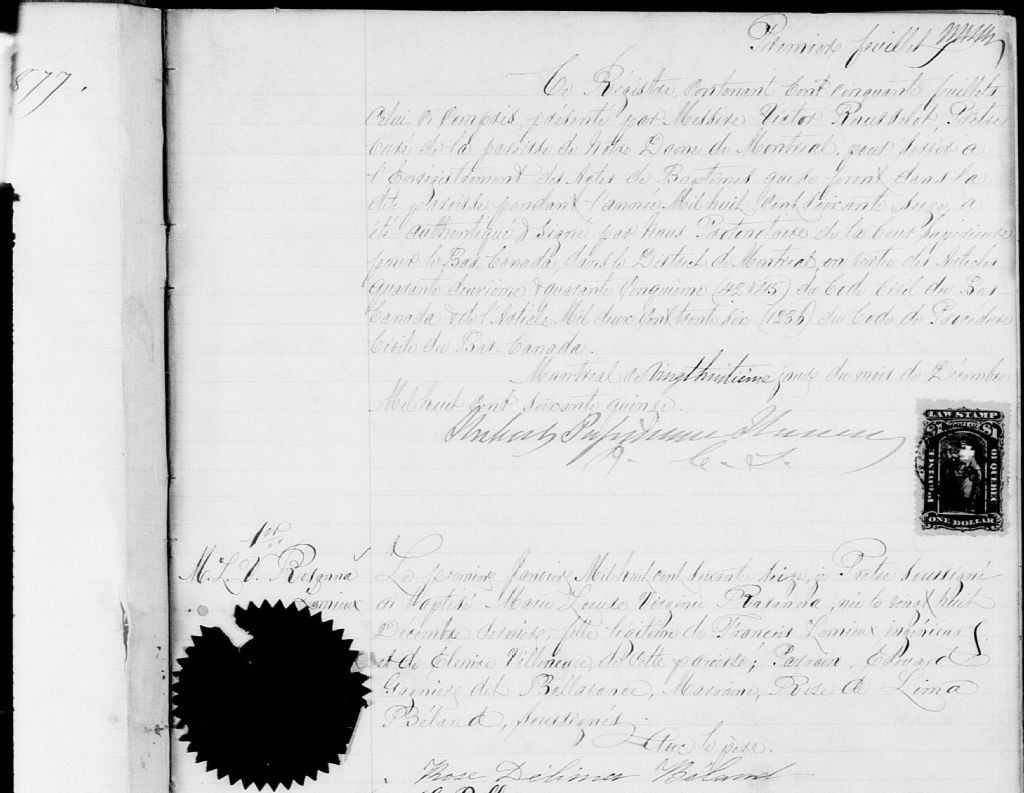 877.
Premier feuillet
Ce Régistre, Contenant Cent Cinquante feuillets
Celui ci Compris, présenté par Messire Victor Rousselot, Prêtre
Curé de la paroisse de Notre Dame de Montréal, pour servir à
l'Enregistrement des Actes de Baptêmes qui se feront dans la
dite paroisse pendant l'année Mil huit Cent Soixante Seize, a
été authentiqué & Signé par Nous Protonotaire de la Cour Supérieure
pour le Bas Canada, dans le District de Montréal, en vertu des Articles
Quarante deuxième & quarante Cinquième (42 & 45) du Code Civil du Bas
Canada & de l'Article Mil deux Cent trente six (1236) du Code de Procédure
Civile du Bas-Canada.
Montréal ce Vingthuitième jour du mois de Décembre
Mil huit Cent Soixante quinze.
Hubert Papineau Honey
P. C. S.
LAW STAMP
$1 DOLLAR $1
PROVINCE OF QUEBEC
ONE DOLLAR
1er
M. L. V. Rosanna
Lemieux
Le premier Janvier Mil huit cent soixante seize, je Prêtre soussigné
ai baptisé Marie Louise Virginie Rosanna, née le vingt huit
Décembre dernier, fille légitime de François Lemieux ingénieur
et de Elmire Villeneuve, de cette paroisse; Parrain, Edouard
Gagnière dit Bellavance, Marraine, Rose de Lima
Béland, soussignés
Avec le père.
Rose Délima Béland